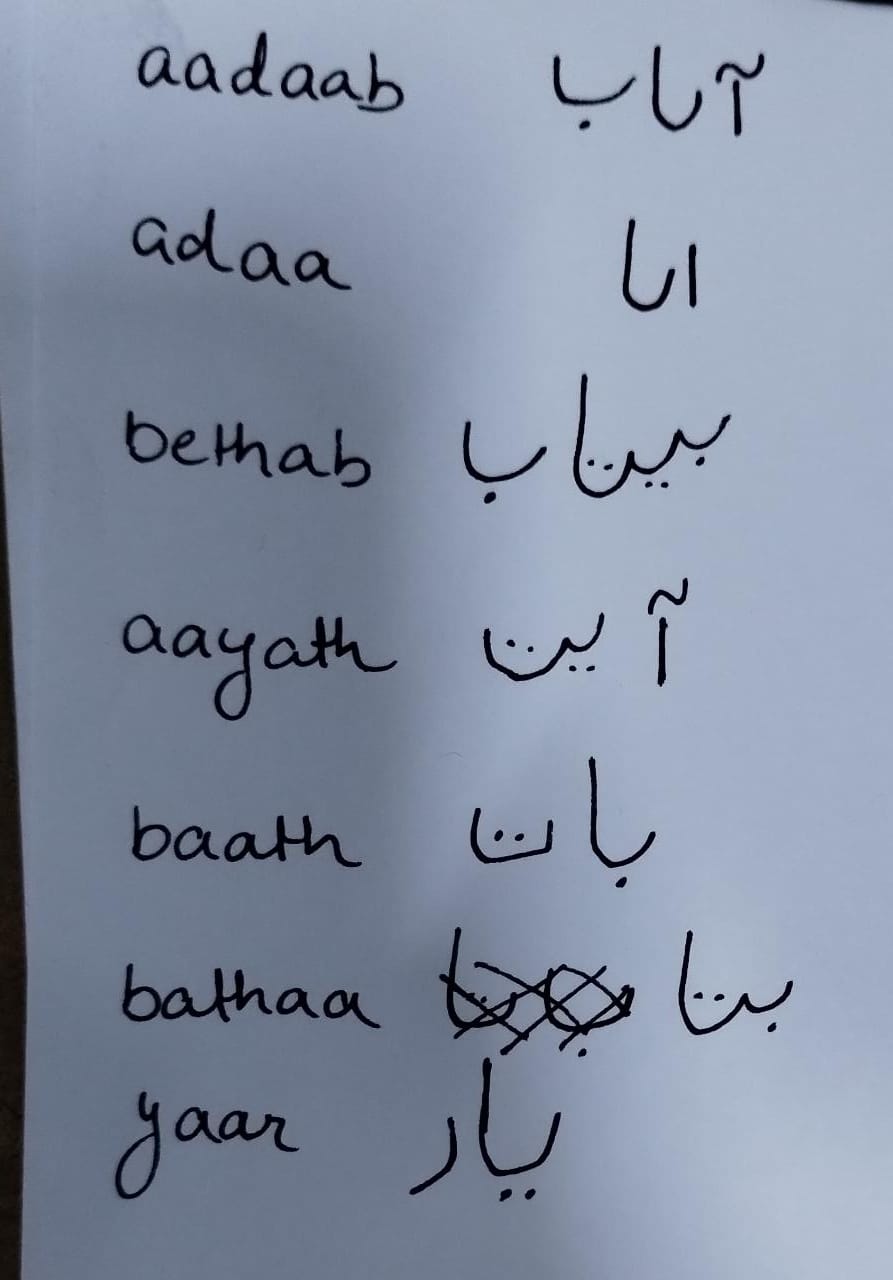 aadaab آداب
adaa ادا
bethab بیتاب
aayath آیت
baath بات
bathaa بتا
yaar یار